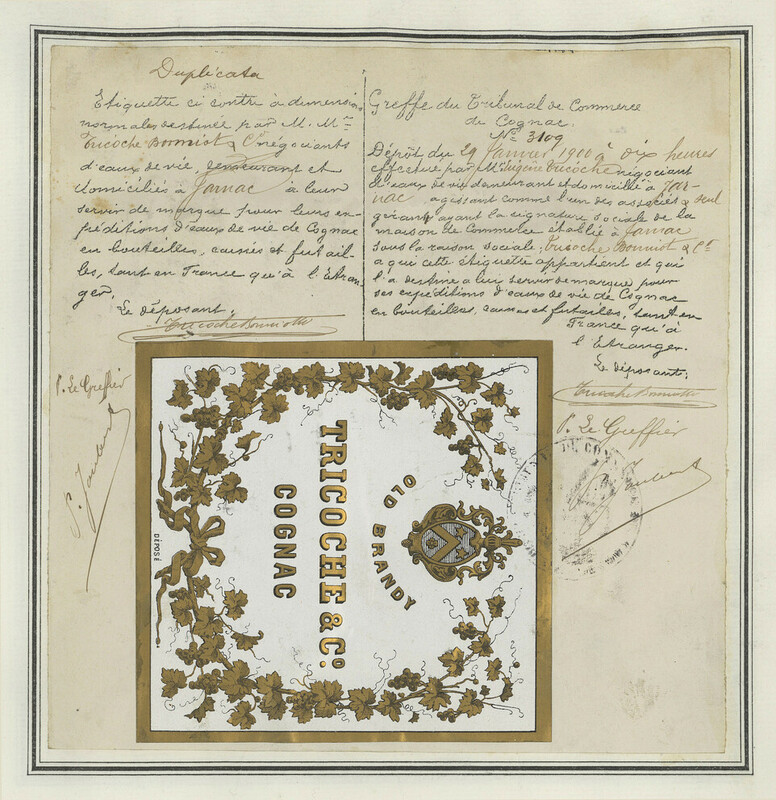 Duplicata
Etiquette ci contre à dimension
normales destinée par M. M.rs
Tricoche Bonniot & Cie négociants
d'eaux de vie, demeurant et
domiciliés à Jarnac à leur
servir de marque pour leurs ex-
péditions d'eaux de vie de Cognac
en bouteilles, caisses et futail-
les, tant en France qu'à l'Etran-
ger.
Le déposant;
Tricoche Bonniot & Cie
P. Le Greffier
P. Jaulard
Greffe du Tribunal de Commerce
de Cognac.
No 3109
Dépôt du 29 Janvier 1900 à dix heures
effectué par Mr Eugène Tricoche négociant
d'eaux de vie demeurant et domicilié à Jar-
nac, agissant comme l'un des associés & seul
gérant ayant la signature sociale de la
maison de Commerce établie à Jarnac
sous la raison sociale; Tricoche Bonniot & Cie
à qui cette étiquette appartient et qui
l'a destiné à lui servir de marque pour
ses expéditions d'eaux de vie de Cognac
en bouteilles, caisses et futailles, tant en
France qu'à
l'Etranger.
Le déposant;
Tricoche Bonniot & Cie
P. Le Greffier
OLD BRANDY
TRICOCHE & Co.
COGNAC
DÉPOSÉ